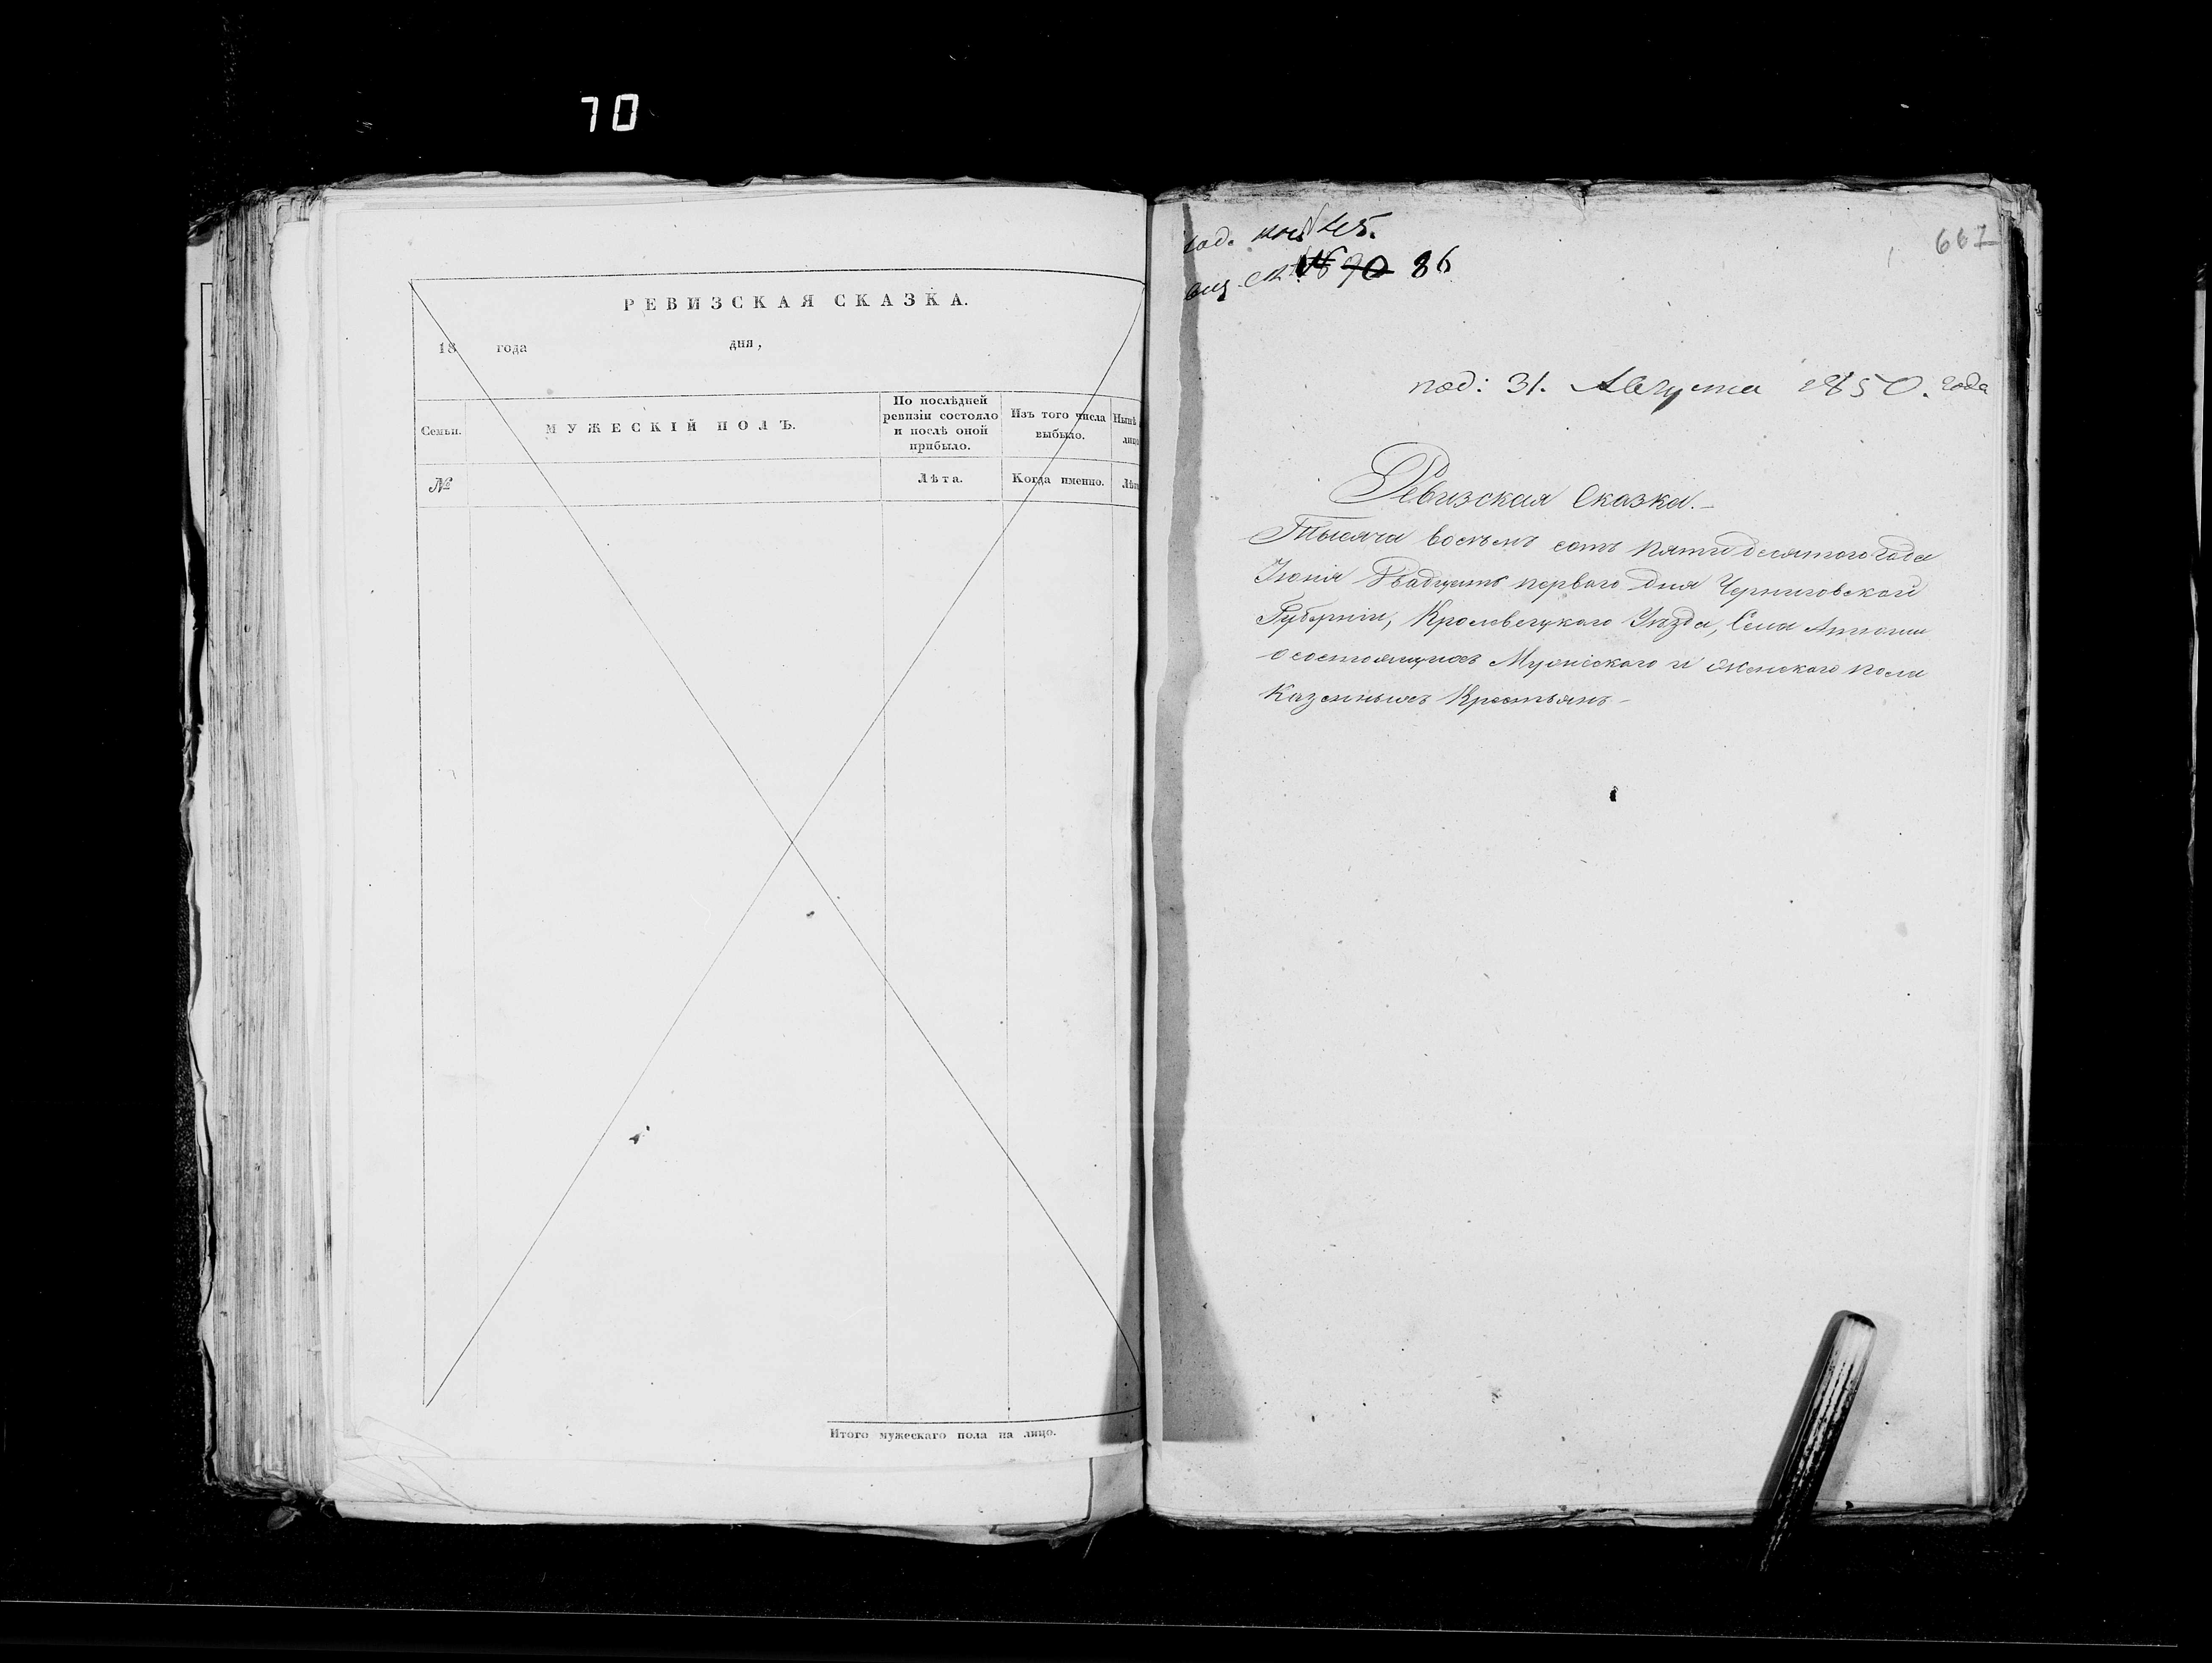 70
РЕВИЗСКАЯ СКАЗКА.
18 года дня,
Семьи.
МУЖЕСКІЙ ПОЛЪ.
По послѣдней
ревизіи состояло
и послѣ оной
прибыло.
Изъ того числа
выбыло.
Нынѣ
лицо
№
Лѣта.
Когда именно.
Лѣт
Итого мужескаго пола на лицо.
№ 45.
№ 70 86
667
под: 31. Августа 1850. года
Ревизская Сказка.
Тысяча восемь сотъ пятидесятого года
Іюнія Двадцать первого дня Черниговской
Губерніи, Кролевецкого Уѣзда, Села
о состоящихъ Мужеского и женского пола
Казенныхъ Крестьянъ